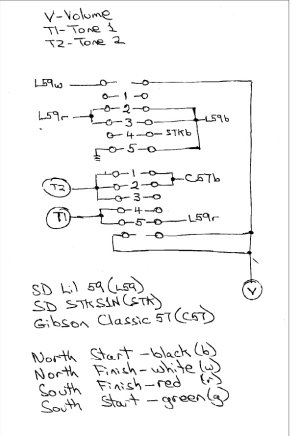 V-Volume
T1-Tone 1
T2-Tone 2
L59w
1
L59r 2
3 L59b
4 STKb
5
T2 1 C57b
2
3
T1 4
5 L59r
V
SD Lil 59 (L59)
SD STKS1N (STK)
Gibson Classic 57 (C57)
North Start - black (b)
North Finish - white (w)
South Finish - red (r)
South Start - green (g)